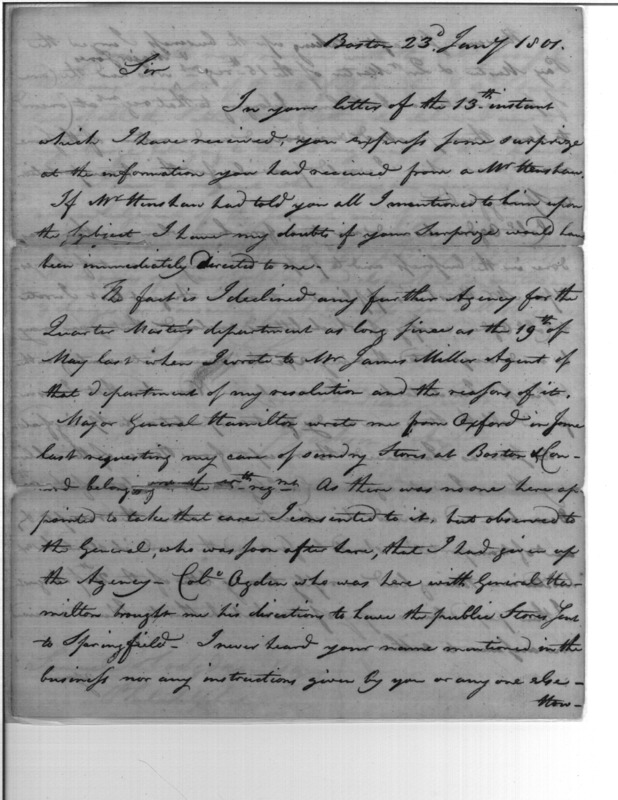 Boston 23d. Jany 1801.
Sir
In your letter of the 13th. instant
which I have received, you express some surprize
at the information you had received from a Mr Henshaw.
If Mr Henshaw had told you all I mentioned to him upon
the subject I have my doubts if your Surprize would have
been immediately directed to me.
The fact is I declined any further Agency for the
Quarter Master's department as long since as the 19th of
May last when I wrote to Mr James Miller Agent of
that department of my resolution and the reasons of it.
Major General Hamilton wrote me from Oxford in June
last requesting my care of sundry Stores at Boston & Con-
-rd belonging to the 15th regmt. As there was no one here ap
pointed to take that care I consented to it, but observed to
the General, who was soon after here, that I had given up
the Agency - Colo Ogden who was here with General Ha-
milton brought me his directions to have the public Stores sent
to Springfield - I never heard your name mentioned in the
business nor any instructions given by you or any one else -
How-